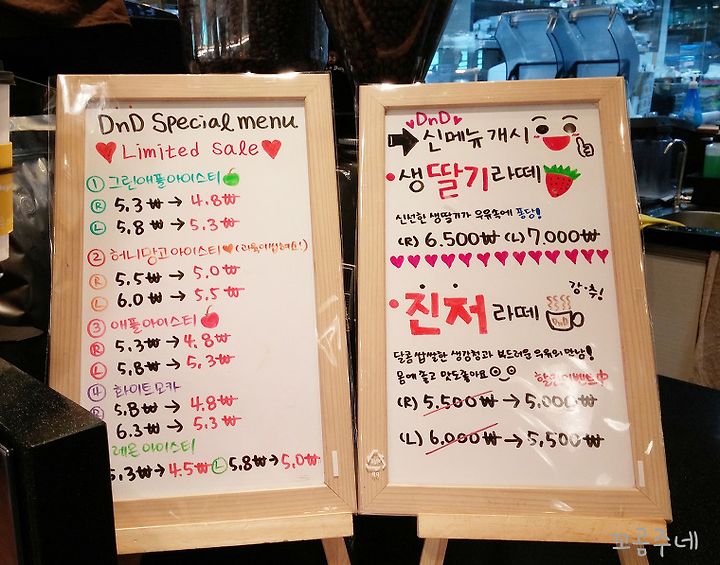 DnD Special menu
Limited Sale
① 그린애플아이스티
Ⓡ 5.3₩ → 4.8₩
Ⓛ 5.8₩ → 5.3₩
② 허니망고아이스티
Ⓡ 5.5₩ → 5.0₩
Ⓛ 6.0₩ → 5.5₩
③ 애플아이스티
Ⓡ 5.3₩ → 4.8₩
Ⓛ 5.8₩ → 5.3₩
④ 화이트모카
Ⓡ 5.8₩ → 4.8₩
6.3₩ → 5.3₩
레몬아이스티
5.3₩ → 4.5₩ Ⓛ 5.8₩ → 5.0₩
DnD
신메뉴 개시
생딸기라떼
신선한 생딸기가 우유속에 퐁당!
(R) 6.500₩ (L) 7.000₩
강·추!
진저라떼
DnD
달콤쌉쌀한 생강청과 부드러운 우유의 만남!
몸에 좋고 맛도좋아요
할인이벤트中
(R) 5,500₩ → 5,000₩
(L) 6,000₩ → 5,500₩
꼬콤주네